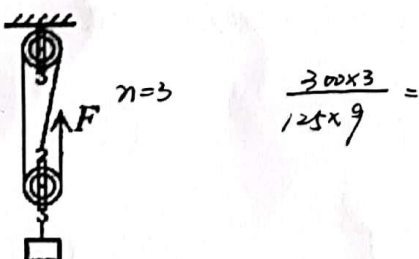 F
n=3
300×3
125×9 =